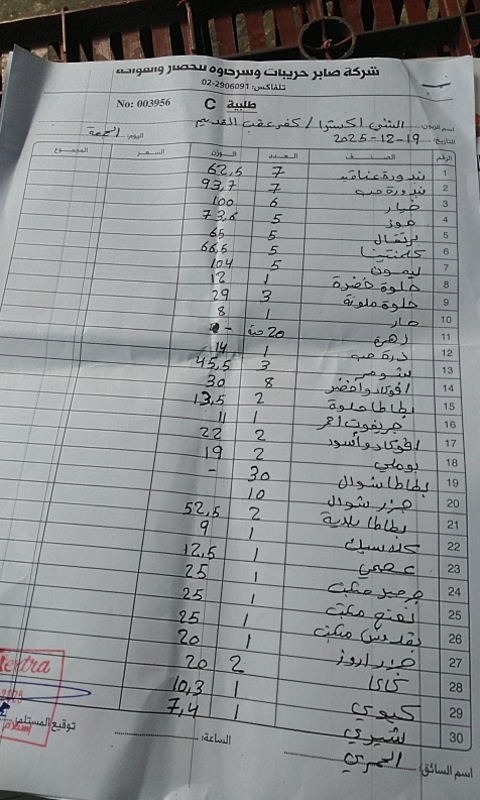 شركة صابر حريبات وسرحاوه للخضار والفواكه
تلفاكس: 02-2906091
طلبية C No: 003956
اسم الزبون: الشني اكسترا / كفر عقب القديم
التاريخ: 19-12-2025 اليوم: الجمعة
الرقم الصنف العدد الوزن السعر المجموع
1 بندورة عناقيد 7 62,5
2 بندورة حب 7 93,7
3 خيار 6 100
4 موز 5 73,6
5 برتقال 5 65
6 كلمنتينا 5 66,5
7 ليمون 5 104
8 حلوة خضرة 1 12
9 حلوة ملونة 3 29
10 حار 1 8
11 زهرة 20 حبة -
12 ذرة حب 1 14
13 شومر 3 45,5
14 افوكادو أخضر 8 30
15 بطاطا حلوة 2 13,5
16 جريفوت احمر 1 11
17 افوكادو أسود 2 22
18 بوملي 2 19
19 بطاطا شوال 30 -
20 جزر شوال 10
21 بطاطا بلدية 2 52,5
22 كلاسيك 1 9
23 1 12,5
24 جرجير مكبت 1 25
25 نعنع مكبت 1 25
26 بقدونس مكبت 1 25
27 جزر 1 20
28 كاكا 2 20
29 كيوي 1 10,3
30 شيري 1 7,4
اسم السائق: العمري الساعة: توقيع المستلم:
extra
2025